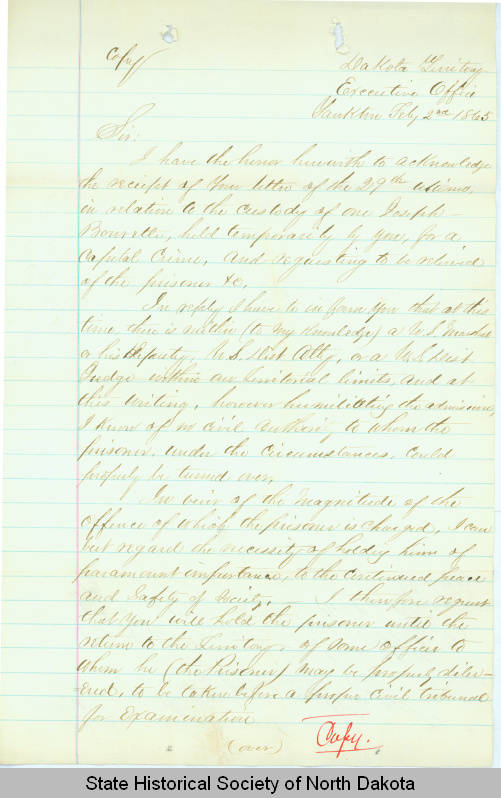 Copy
Dakota Territory
Executive Office
Yankton Feby 2nd 1865
Sir:
I have the honor herewith to acknowledge
the receipt of Your letter of the 29th ultimo,
in relation to the custody of one Joseph
held temporarily by you, for a
Capital Crime, and requesting to be relieved
of the prisoner &c.
In reply I have to inform You that at this
time there is neither (to my knowledge) a U.S. Marshal
or his Deputy, U.S. Dist Atty, or a U.S. Dist
Judge within our Territorial limits, and at
this writing, however humiliating the admission,
I know of no civil authority to whom the
prisoner, under the circumstances, could
properly be turned over.
In view of the magnitude of the
offence of which the prisoner is charged, I can
but regard the necessity of holding him of
paramount importance, to the continued peace
and safety of Society. — I therefore request
that You will hold the prisoner until the
return to the Territory, of some officer to
whom he (the Prisoner) may be properly deliv-
ered, to be taken before a proper Civil tribunal
for Examination
(over) Copy.
State Historical Society of North Dakota